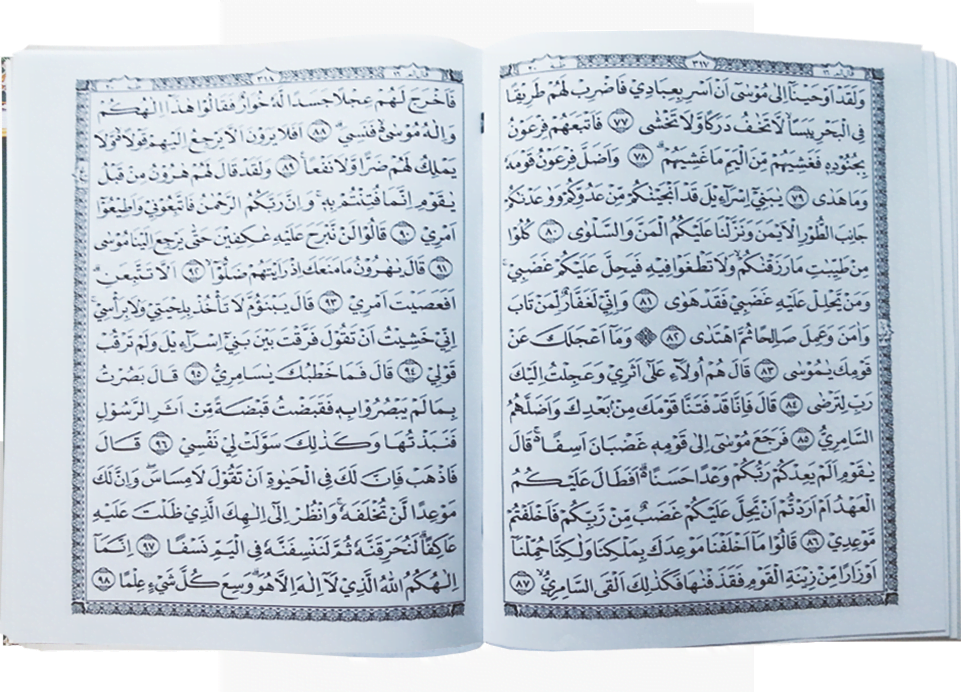 قال الم ١٦
٣١٧
طه ٢٠
وَلَقَدْ اَوْحَيْنَآ اِلٰى مُوْسٰىٓ اَنْ اَسْرِ بِعِبَادِيْ فَاضْرِبْ لَهُمْ طَرِيْقًا
فِى الْبَحْرِ يَبَسًاۙ لَّا تَخٰفُ دَرَكًا وَّلَا تَخْشٰى ٧٧ فَاَتْبَعَهُمْ فِرْعَوْنُ
بِجُنُوْدِهٖ فَغَشِيَهُمْ مِّنَ الْيَمِّ مَا غَشِيَهُمْۗ ٧٨ وَاَضَلَّ فِرْعَوْنُ قَوْمَهٗ
وَمَا هَدٰى ٧٩ يٰبَنِيْٓ اِسْرَاۤءِيْلَ قَدْ اَنْجَيْنٰكُمْ مِّنْ عَدُوِّكُمْ وَوٰعَدْنٰكُمْ
جَانِبَ الطُّوْرِ الْاَيْمَنَ وَنَزَّلْنَا عَلَيْكُمُ الْمَنَّ وَالسَّلْوٰى ٨٠ كُلُوْا
مِنْ طَيِّبٰتِ مَا رَزَقْنٰكُمْۙ وَلَا تَطْغَوْا فِيْهِ فَيَحِلَّ عَلَيْكُمْ غَضَبِيْۚ
وَمَنْ يَّحْلِلْ عَلَيْهِ غَضَبِيْ فَقَدْ هَوٰى ٨١ وَاِنِّيْ لَغَفَّارٌ لِّمَنْ تَابَ
وَاٰمَنَ وَعَمِلَ صَالِحًا ثُمَّ اهْتَدٰى ٨٢ ۞ وَمَآ اَعْجَلَكَ عَنْ
قَوْمِكَ يٰمُوْسٰى ٨٣ قَالَ هُمْ اُولَاۤءِ عَلٰٓى اَثَرِيْ وَعَجِلْتُ اِلَيْكَ
رَبِّ لِتَرْضٰى ٨٤ قَالَ فَاِنَّا قَدْ فَتَنَّا قَوْمَكَ مِنْۢ بَعْدِكَ وَاَضَلَّهُمُ
السَّامِرِيُّ ٨٥ فَرَجَعَ مُوْسٰىٓ اِلٰى قَوْمِهٖ غَضْبَانَ اَسِفًاۚ قَالَ
يٰقَوْمِ اَلَمْ يَعِدْكُمْ رَبُّكُمْ وَعْدًا حَسَنًاۗ اَفَطَالَ عَلَيْكُمُ
الْعَهْدُ اَمْ اَرَدْتُّمْ اَنْ يَّحِلَّ عَلَيْكُمْ غَضَبٌ مِّنْ رَّبِّكُمْ فَاَخْلَفْتُمْ
مَّوْعِدِيْ ٨٦ قَالُوْا مَآ اَخْلَفْنَا مَوْعِدَكَ بِمَلْكِنَا وَلٰكِنَّا حُمِّلْنَآ
اَوْزَارًا مِّنْ زِيْنَةِ الْقَوْمِ فَقَذَفْنٰهَا فَكَذٰلِكَ اَلْقَى السَّامِرِيُّۙ ٨٧
قال الم ١٦
٣١٨
طه ٢٠
فَاَخْرَجَ لَهُمْ عِجْلًا جَسَدًا لَّهٗ خُوَارٌ فَقَالُوْا هٰذَآ اِلٰهُكُمْ
وَاِلٰهُ مُوْسٰى ەۙ فَنَسِيَۗ ٨٨ اَفَلَا يَرَوْنَ اَلَّا يَرْجِعُ اِلَيْهِمْ قَوْلًا ەۙ وَّلَا
يَمْلِكُ لَهُمْ ضَرًّا وَّلَا نَفْعًاۗ ٨٩ وَلَقَدْ قَالَ لَهُمْ هٰرُوْنُ مِنْ قَبْلُ
يٰقَوْمِ اِنَّمَا فُتِنْتُمْ بِهٖۚ وَاِنَّ رَبَّكُمُ الرَّحْمٰنُ فَاتَّبِعُوْنِيْ وَاَطِيْعُوْٓا
اَمْرِيْ ٩٠ قَالُوْا لَنْ نَّبْرَحَ عَلَيْهِ عٰكِفِيْنَ حَتّٰى يَرْجِعَ اِلَيْنَا مُوْسٰى
٩١ قَالَ يٰهٰرُوْنُ مَا مَنَعَكَ اِذْ رَاَيْتَهُمْ ضَلُّوْٓاۙ ٩٢ اَلَّا تَتَّبِعَنِۗ
اَفَعَصَيْتَ اَمْرِيْ ٩٣ قَالَ يَبْنَؤُمَّ لَا تَأْخُذْ بِلِحْيَتِيْ وَلَا بِرَأْسِيْۚ
اِنِّيْ خَشِيْتُ اَنْ تَقُوْلَ فَرَّقْتَ بَيْنَ بَنِيْٓ اِسْرَاۤءِيْلَ وَلَمْ تَرْقُبْ
قَوْلِيْ ٩٤ قَالَ فَمَا خَطْبُكَ يٰسَامِرِيُّ ٩٥ قَالَ بَصُرْتُ
بِمَا لَمْ يَبْصُرُوْا بِهٖ فَقَبَضْتُ قَبْضَةً مِّنْ اَثَرِ الرَّسُوْلِ
فَنَبَذْتُهَا وَكَذٰلِكَ سَوَّلَتْ لِيْ نَفْسِيْ ٩٦ قَالَ
فَاذْهَبْ فَاِنَّ لَكَ فِى الْحَيٰوةِ اَنْ تَقُوْلَ لَا مِسَاسَۖ وَاِنَّ لَكَ
مَوْعِدًا لَّنْ تُخْلَفَهٗۚ وَانْظُرْ اِلٰٓى اِلٰهِكَ الَّذِيْ ظَلْتَ عَلَيْهِ
عَاكِفًاۗ لَنُحَرِّقَنَّهٗ ثُمَّ لَنَنْسِفَنَّهٗ فِى الْيَمِّ نَسْفًا ٩٧ اِنَّمَآ
اِلٰهُكُمُ اللّٰهُ الَّذِيْ لَآ اِلٰهَ اِلَّا هُوَۗ وَسِعَ كُلَّ شَيْءٍ عِلْمًا ٩٨